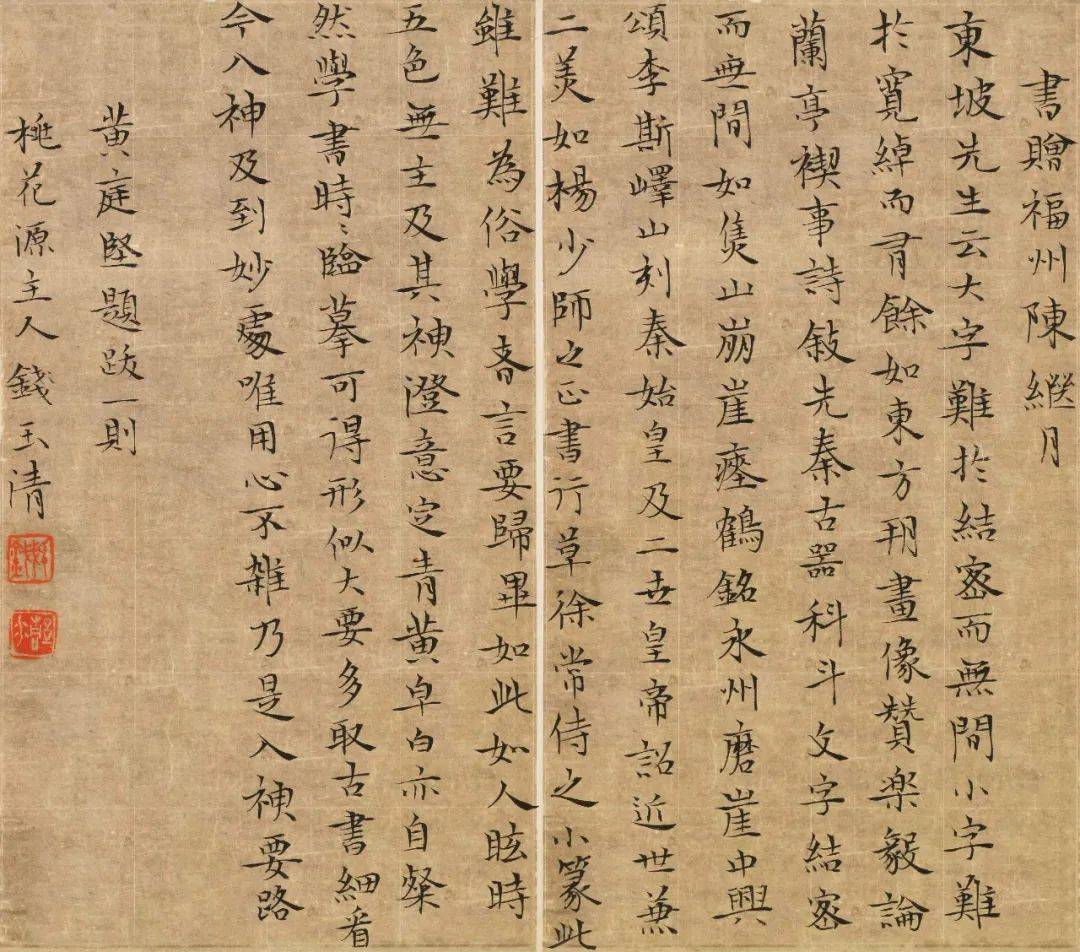 書贈福州陳繼月
東坡先生云大字難於結密而無間小字難
於寬綽而有餘如東方朔畫像贊楽毅論
蘭亭禊事詩敍先秦古器科斗文字結密
而無間如焦山崩崖瘞鶴銘永州磨崖中興
頌李斯嶧山刻秦始皇及二世皇帝詔近世兼
二美如楊少師之正書行草徐常侍之小篆此
雖難為俗學者言要歸畢如此如人眩時
五色無主及其神澄意定青黃皁白亦自粲
然學書時〻臨摹可得形似大要多取古書細看
令入神及到妙處唯用心不雜乃是入神要路
黃庭堅題跋一則
桃花源主人錢玉清